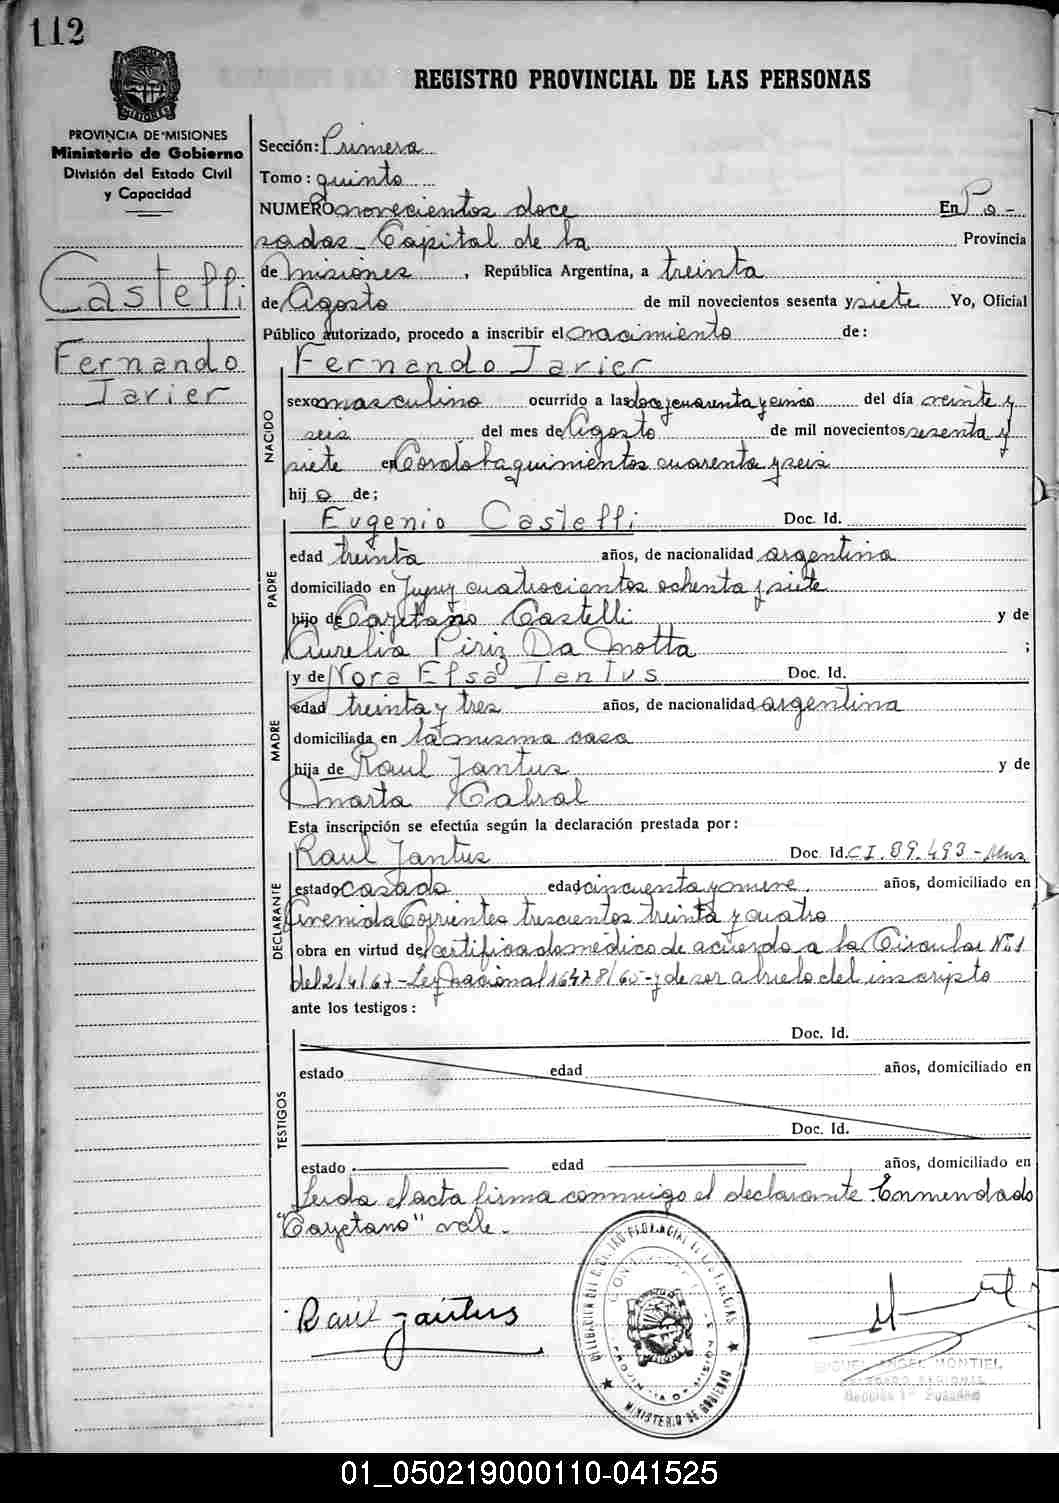 112
REGISTRO PROVINCIAL DE LAS PERSONAS
PROVINCIA DE MISIONES
Ministerio de Gobierno
División del Estado Civil
y Capacidad
Castelli
Fernando
Javier
Sección: Primera
Tomo: quinto
NUMERO novecientos doce En Po-
sadas Capital de la Provincia
de Misiones, República Argentina, a treinta
de Agosto de mil novecientos sesenta y siete Yo, Oficial
Público autorizado, procedo a inscribir el nacimiento de:
NACIDO
Fernando Javier
sexo masculino ocurrido a las doce y cuarenta y cinco del día veinte y
seis del mes de Agosto de mil novecientos sesenta y
siete en Cordoba quinientos cuarenta y seis
hij o de;
PADRE
Eugenio Castelli Doc. Id.
edad treinta años, de nacionalidad argentina
domiciliado en Jujuy cuatrocientos ochenta y siete
hijo de Cayetano Castelli y de
Aurelia Piriz Da Motta ;
MADRE
y de Nora Elsa Jantus Doc. Id.
edad treinta y tres años, de nacionalidad argentina
domiciliada en la misma casa
hija de Raul Jantus y de
Marta Cabral
Esta inscripción se efectúa según la declaración prestada por:
DECLARANTE
Raul Jantus Doc. Id. C.I. 89.493-Mns
estado casado edad cincuenta y nueve. años, domiciliado en
Avenida Corrientes trescientos treinta y cuatro
obra en virtud de certificado médico de acuerdo a la Circular Nº 1
del 2/4/67-Ley nacional 16478/65-y de ser abuelo del inscripto
ante los testigos:
TESTIGOS
Doc. Id.
estado edad años, domiciliado en
Doc. Id.
estado edad años, domiciliado en
Leida el acta firma conmigo el declarante-Enmendado
"Cayetano" vale.-
Raúl Jantus
MINISTERIO DE GOBIERNO
MIGUEL ANGEL MONTIEL
01_050219000110-041525